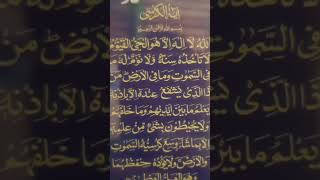 آية الكرسي
بسم الله الرحمن الرحيم
الله لا إله إلا هو الحي القيوم
لا تأخذه سنة ولا نوم له ما
في السموت وما في الأرض من
ذا الذي يشفع عنده إلا بإذنه
يعلم ما بين أيديهم وما خلفهم
ولا يحيطون بشئ من علمه
إلا بما شاء وسع كرسيه السموت
والأرض ولا يؤده حفظهما
وهو العلي العظيم